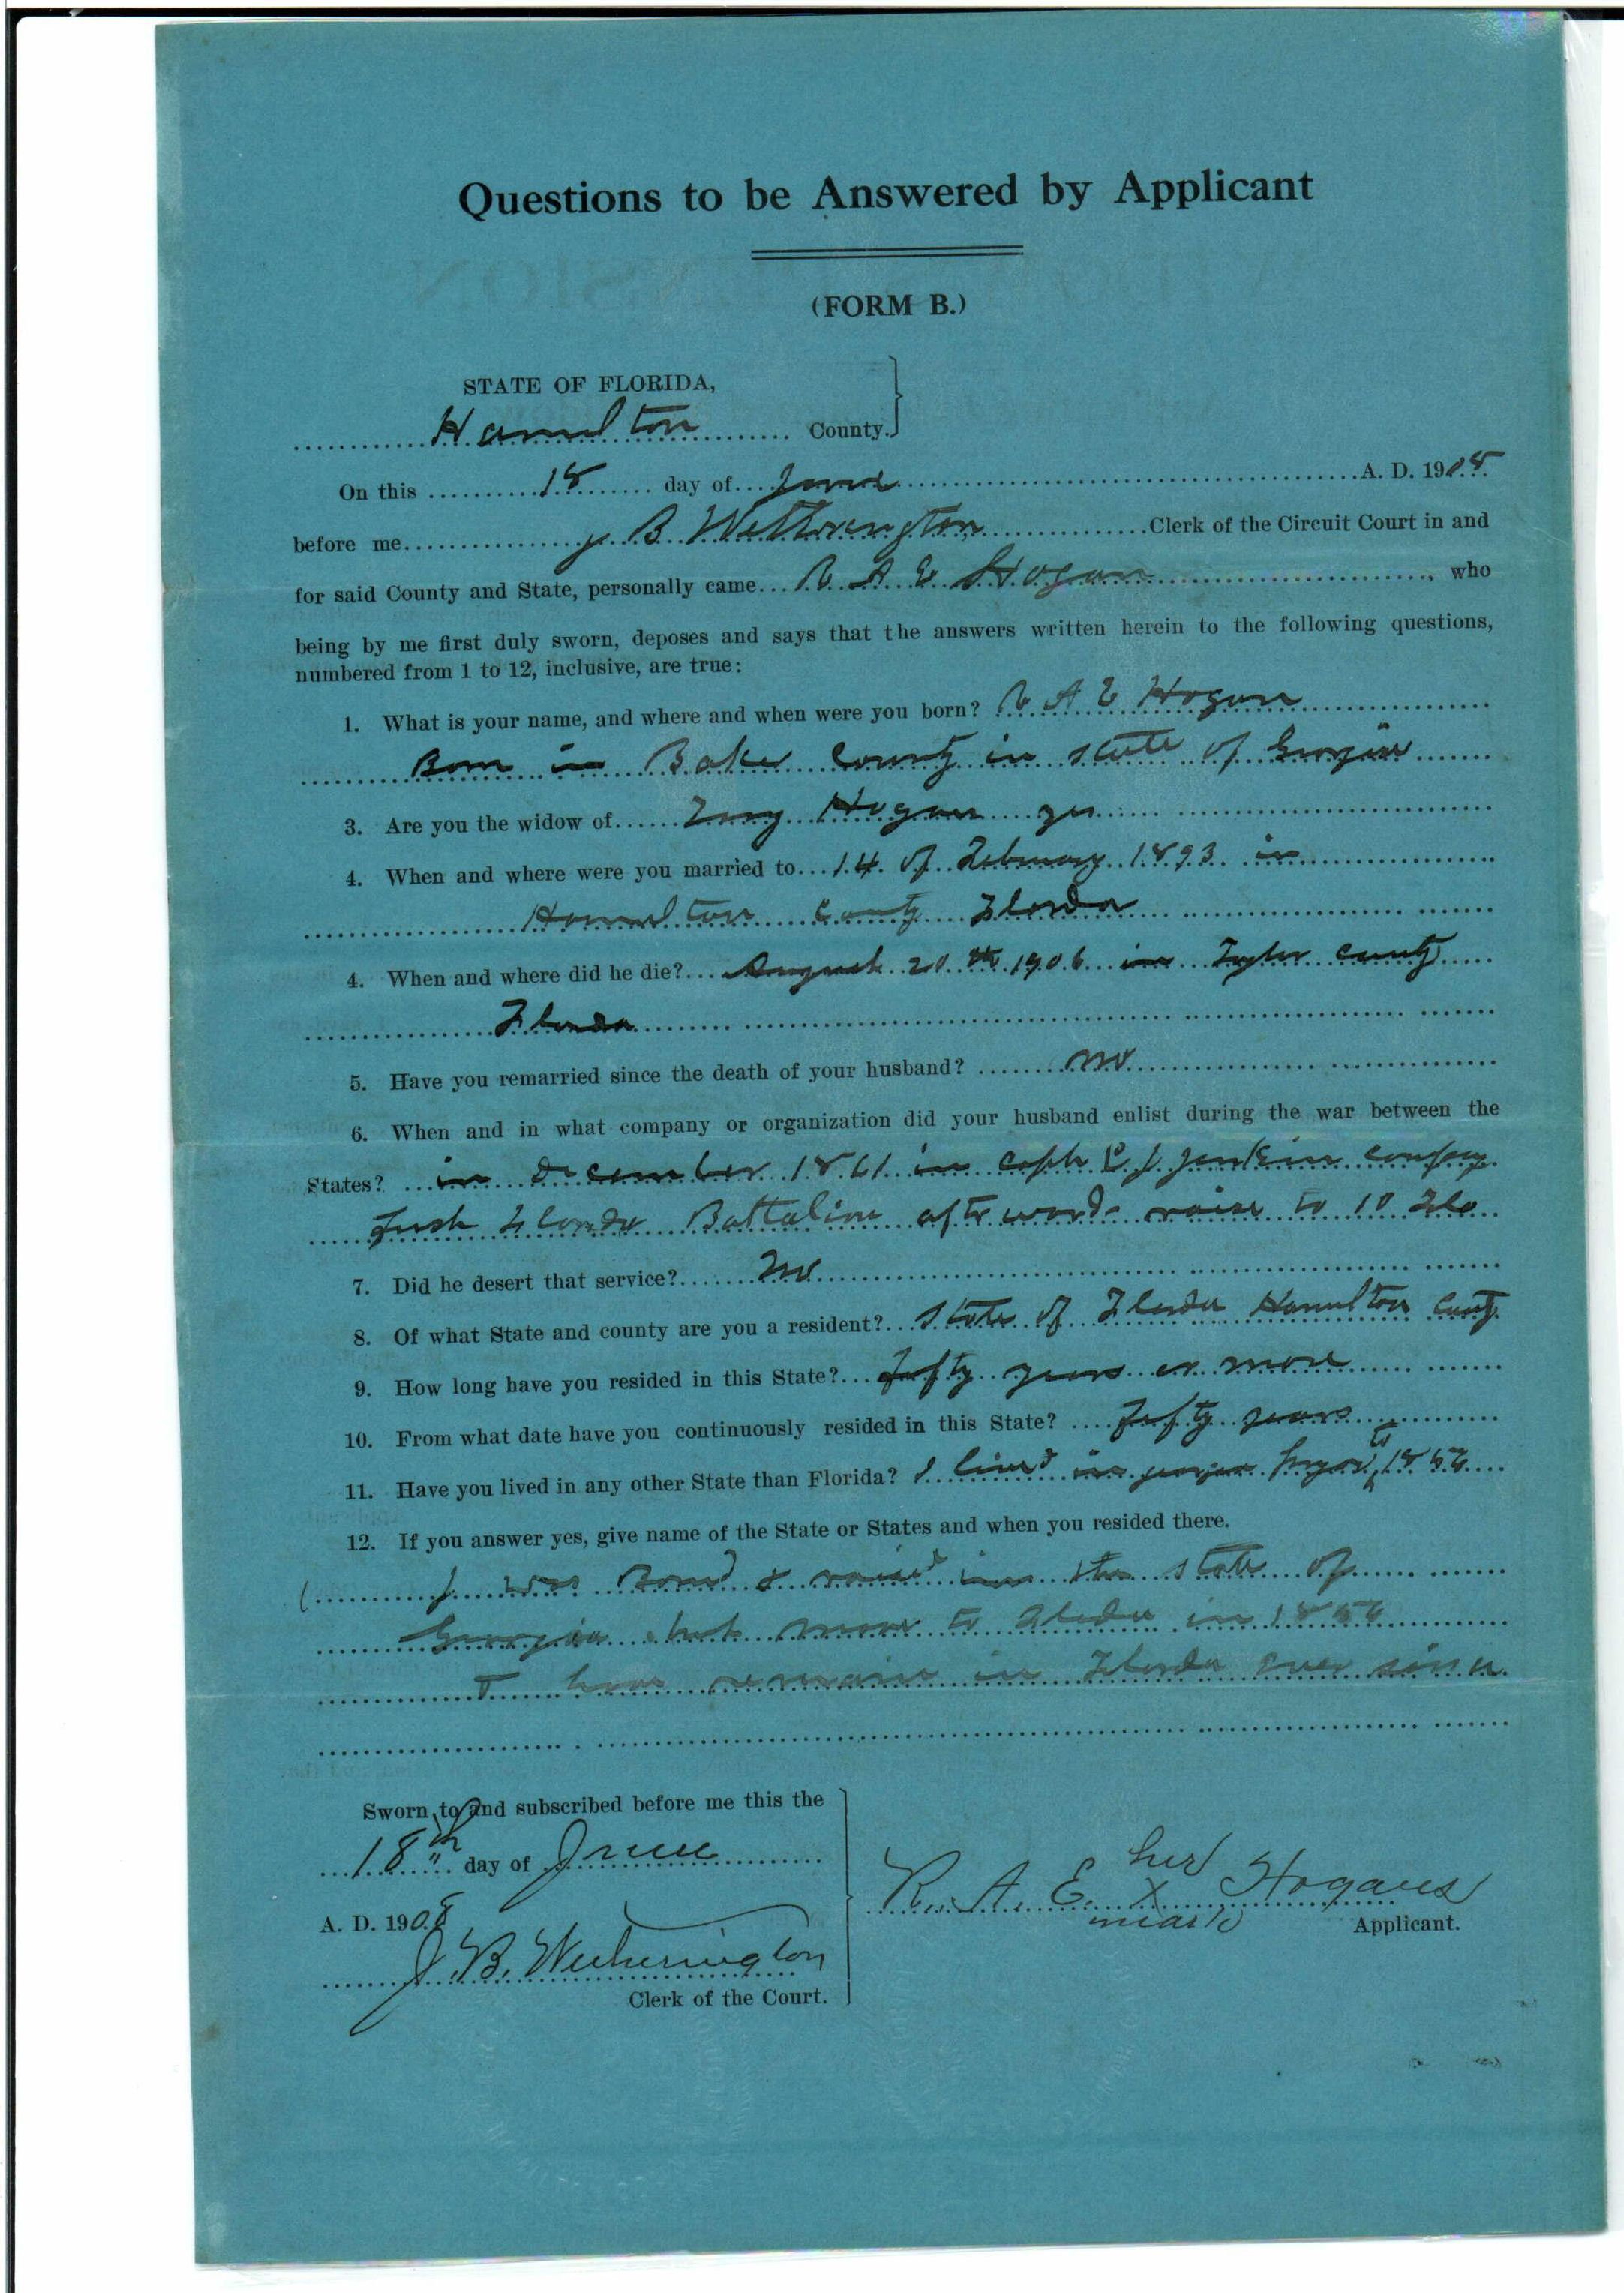 Questions to be Answered by Applicant
(FORM B.)
STATE OF FLORIDA,
Hamilton County.
On this 18 day of June A. D. 1908
before me J B Wethrington Clerk of the Circuit Court in and
for said County and State, personally came R A E Hogan, who
being by me first duly sworn, deposes and says that the answers written herein to the following questions,
numbered from 1 to 12, inclusive, are true:
1. What is your name, and where and when were you born? R A E Hogan
Born in Baker County in state of Georgia
3. Are you the widow of Hogan yes
4. When and where were you married to 14 of February 1893 in
Hamilton County Florda
4. When and where did he die? August 20th 1906 in Tayler County
Florda
5. Have you remarried since the death of your husband? no
6. When and in what company or organization did your husband enlist during the war between the
States? in December 1861 in capt J Jenkin company
Florda Battalion afterwards raise to 10 Flo
7. Did he desert that service? no
8. Of what State and county are you a resident? State of Florda Hamilton County
9. How long have you resided in this State? fifty years or more
10. From what date have you continuously resided in this State? fifty years
11. Have you lived in any other State than Florida? I lived in
12. If you answer yes, give name of the State or States and when you resided there.
I was Born & raised in the state of
Georgia but move to in
I have remain in Florda ever since
Sworn to and subscribed before me this the
18th day of June
A. D. 1908
J. B. Wetherington
Clerk of the Court.
her
R. A. E. X Hogans
mark
Applicant.